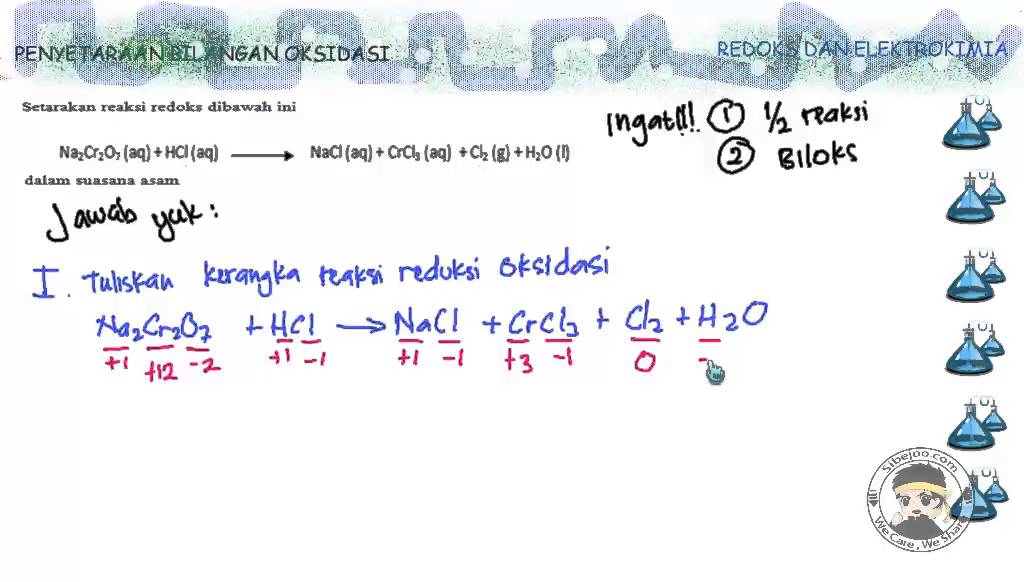 PENYETARAAN BILANGAN OKSIDASI
REDOKS DAN ELEKTROKIMIA
Setarakan reaksi redoks dibawah ini
Na₂Cr₂O₇ (aq) + HCl (aq) ⟶ NaCl (aq) + CrCl₃ (aq) + Cl₂ (g) + H₂O (l)
dalam suasana asam
Ingat!!! ① 1/2 reaksi
② BILOKS
Jawab yuk :
I. Tuliskan kerangka reaksi reduksi oksidasi
Na₂Cr₂O₇ + HCl → NaCl + CrCl₃ + Cl₂ + H₂O
+1 +12 -2 +1 -1 +1 -1 +3 -1 0
Sibejoo.com
We Care, We Share